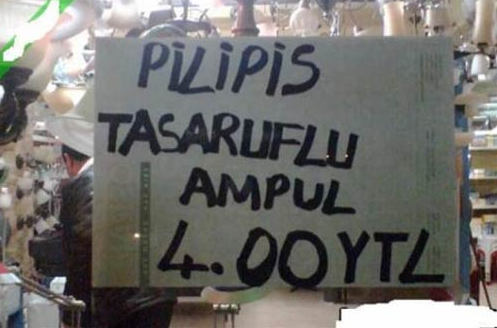 PİLİPİS
TASARUFLU
AMPUL
4.00 YTL